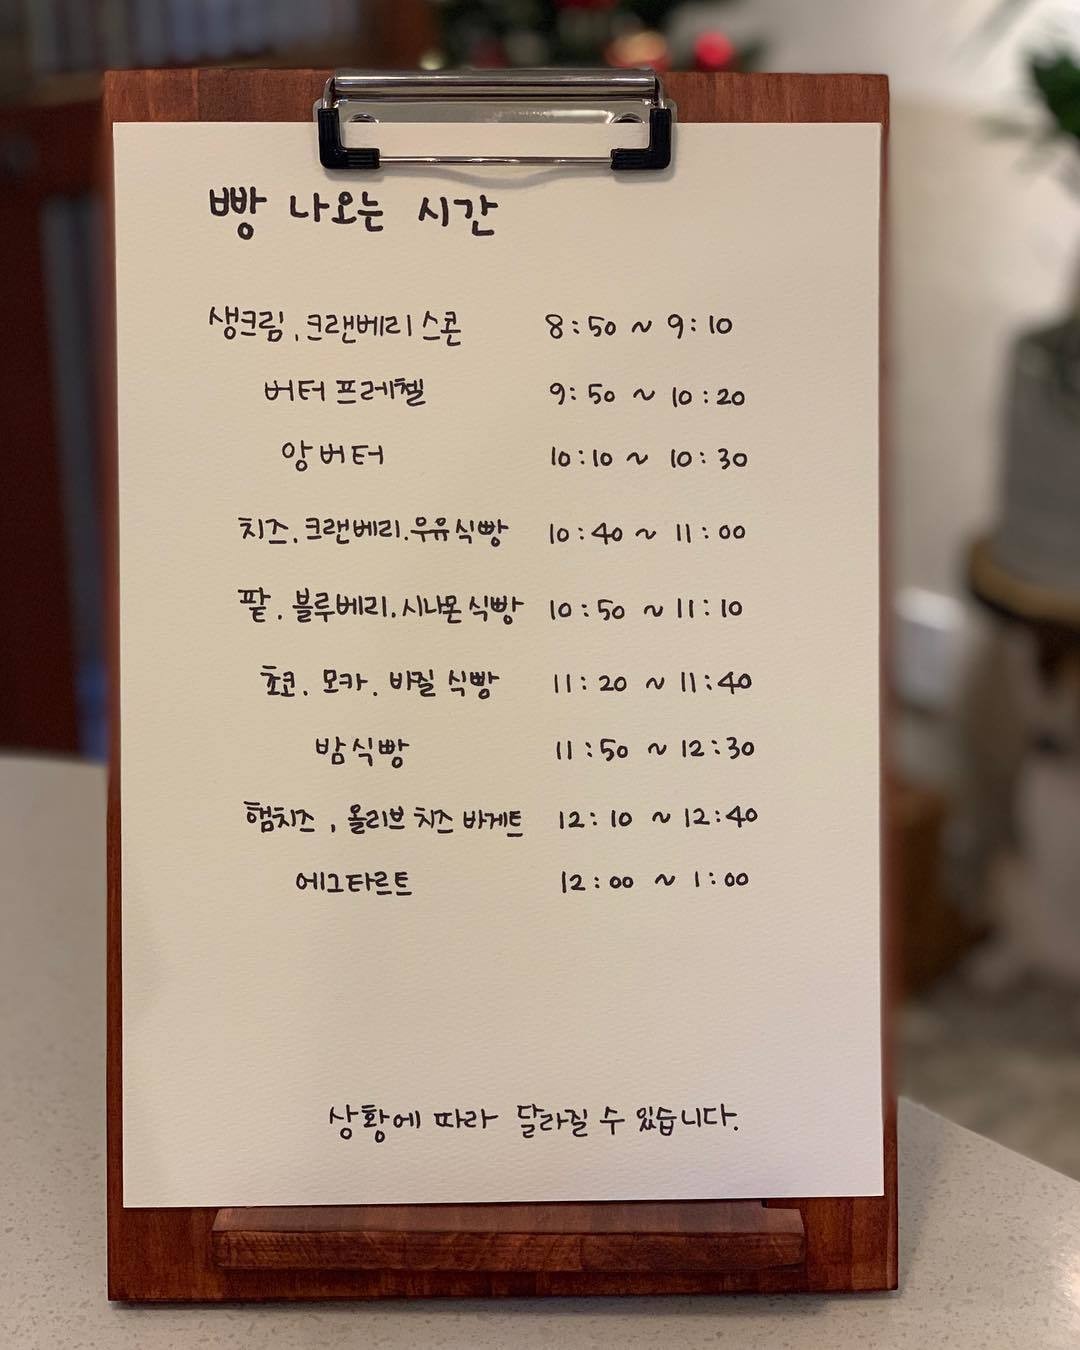 빵 나오는 시간
생크림, 크랜베리 스콘 8:50 ~ 9:10
버터 프레첼 9:50 ~ 10:20
앙버터 10:10 ~ 10:30
치즈. 크랜베리. 우유 식빵 10:40 ~ 11:00
팥. 블루베리. 시나몬 식빵 10:50 ~ 11:10
쵸코. 모카. 바질 식빵 11:20 ~ 11:40
밤식빵 11:50 ~ 12:30
햄치즈, 올리브 치즈 바게트 12:10 ~ 12:40
에그타르트 12:00 ~ 1:00
상황에 따라 달라질 수 있습니다.